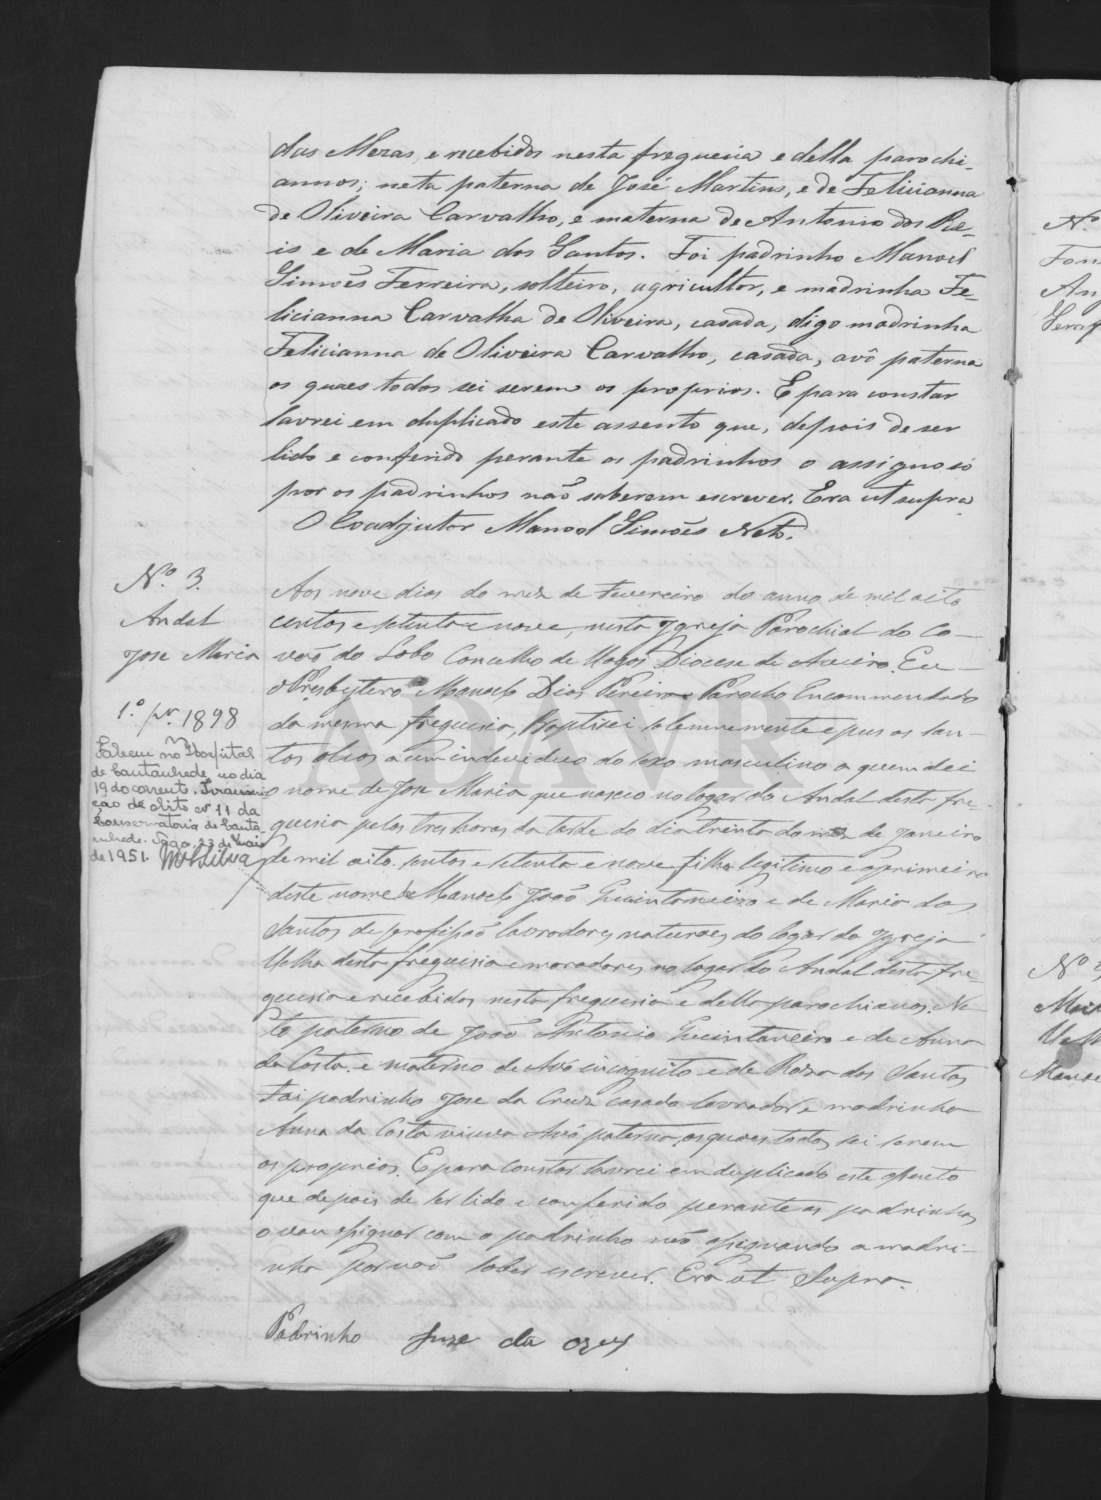 das Mezas, e recebidos nesta freguezia e della parochi-
annos; neta paterna de José Martins, e de Felicianna
de Oliveira Carvalho, e materna de Antonio dos Re-
is e de Maria dos Santos. Foi padrinho Manoel
Simões Ferreira, solteiro, agricultor, e madrinha Fe-
licianna Carvalha de Oliveira, casada, digo madrinha
Felicianna de Oliveira Carvalho, casada, avô paterna
os quaes todos sei serem os proprios. E para constar
lavrei em duplicado este assento que, depois de ser
lido e conferido perante os padrinhos o assigno só
por os padrinhos não saberem escrever. Era ut supra
O Coadjutor Manoel Simões Neto.
Nº 3.
Andal
Jose Maria
1.º pr. 1898
Faleceu no Hospital
de Cantanhede, no dia
19 do corrente.
ção de obito nº 11 da
Conservatoria de Canta
nhede. Vagos, 23 de Maio
de 1951. MSSilva
Aos nove dias do mez de Fevereiro do anno de mil oito
centos e setenta e nove, nesta Igreja Parochial do Co-
vão do Lobo Concelho de Vagos Diocese de Aveiro. Eu
o Presbytero Manoel Dias Pereira Parocho Encommendado
da mesma freguesia, Baptisei solemnemente e pus os San-
tos oleos a um individuo do sexo masculino a quem dei
o nome de Jose Maria que nasceo no logar do Andal desta fre-
guesia pelas tres horas da tarde do dia trinta do mez de Janeiro
de mil oito centos e setenta e nove filho legitimo e o primeiro
deste nome de Manoel João Quintaneiro e de Maria dos
Santos de profissão lavradores naturaes do logar da Igreja
Velha desta freguesia e moradores no logar do Andal desta fre-
guesia e recebidos nesta freguesia e della parochianos. Ne-
to paterno de João Antonio Quintaneiro e de Anna
da Costa, e materno de Avô incognito e de Roza dos Santos
Foi padrinho Jose da Cruz casado lavrador e madrinha
Anna da Costa viuva Avó paterna, os quaes todos sei serem
os proprios. E para constar lavrei em duplicado este assento
que depois de ser lido e conferido perante os padrinhos
o vou assignar com o padrinho não assignando a madri-
nha por não saber escrever. Era ut Supra.
Padrinho Juze da